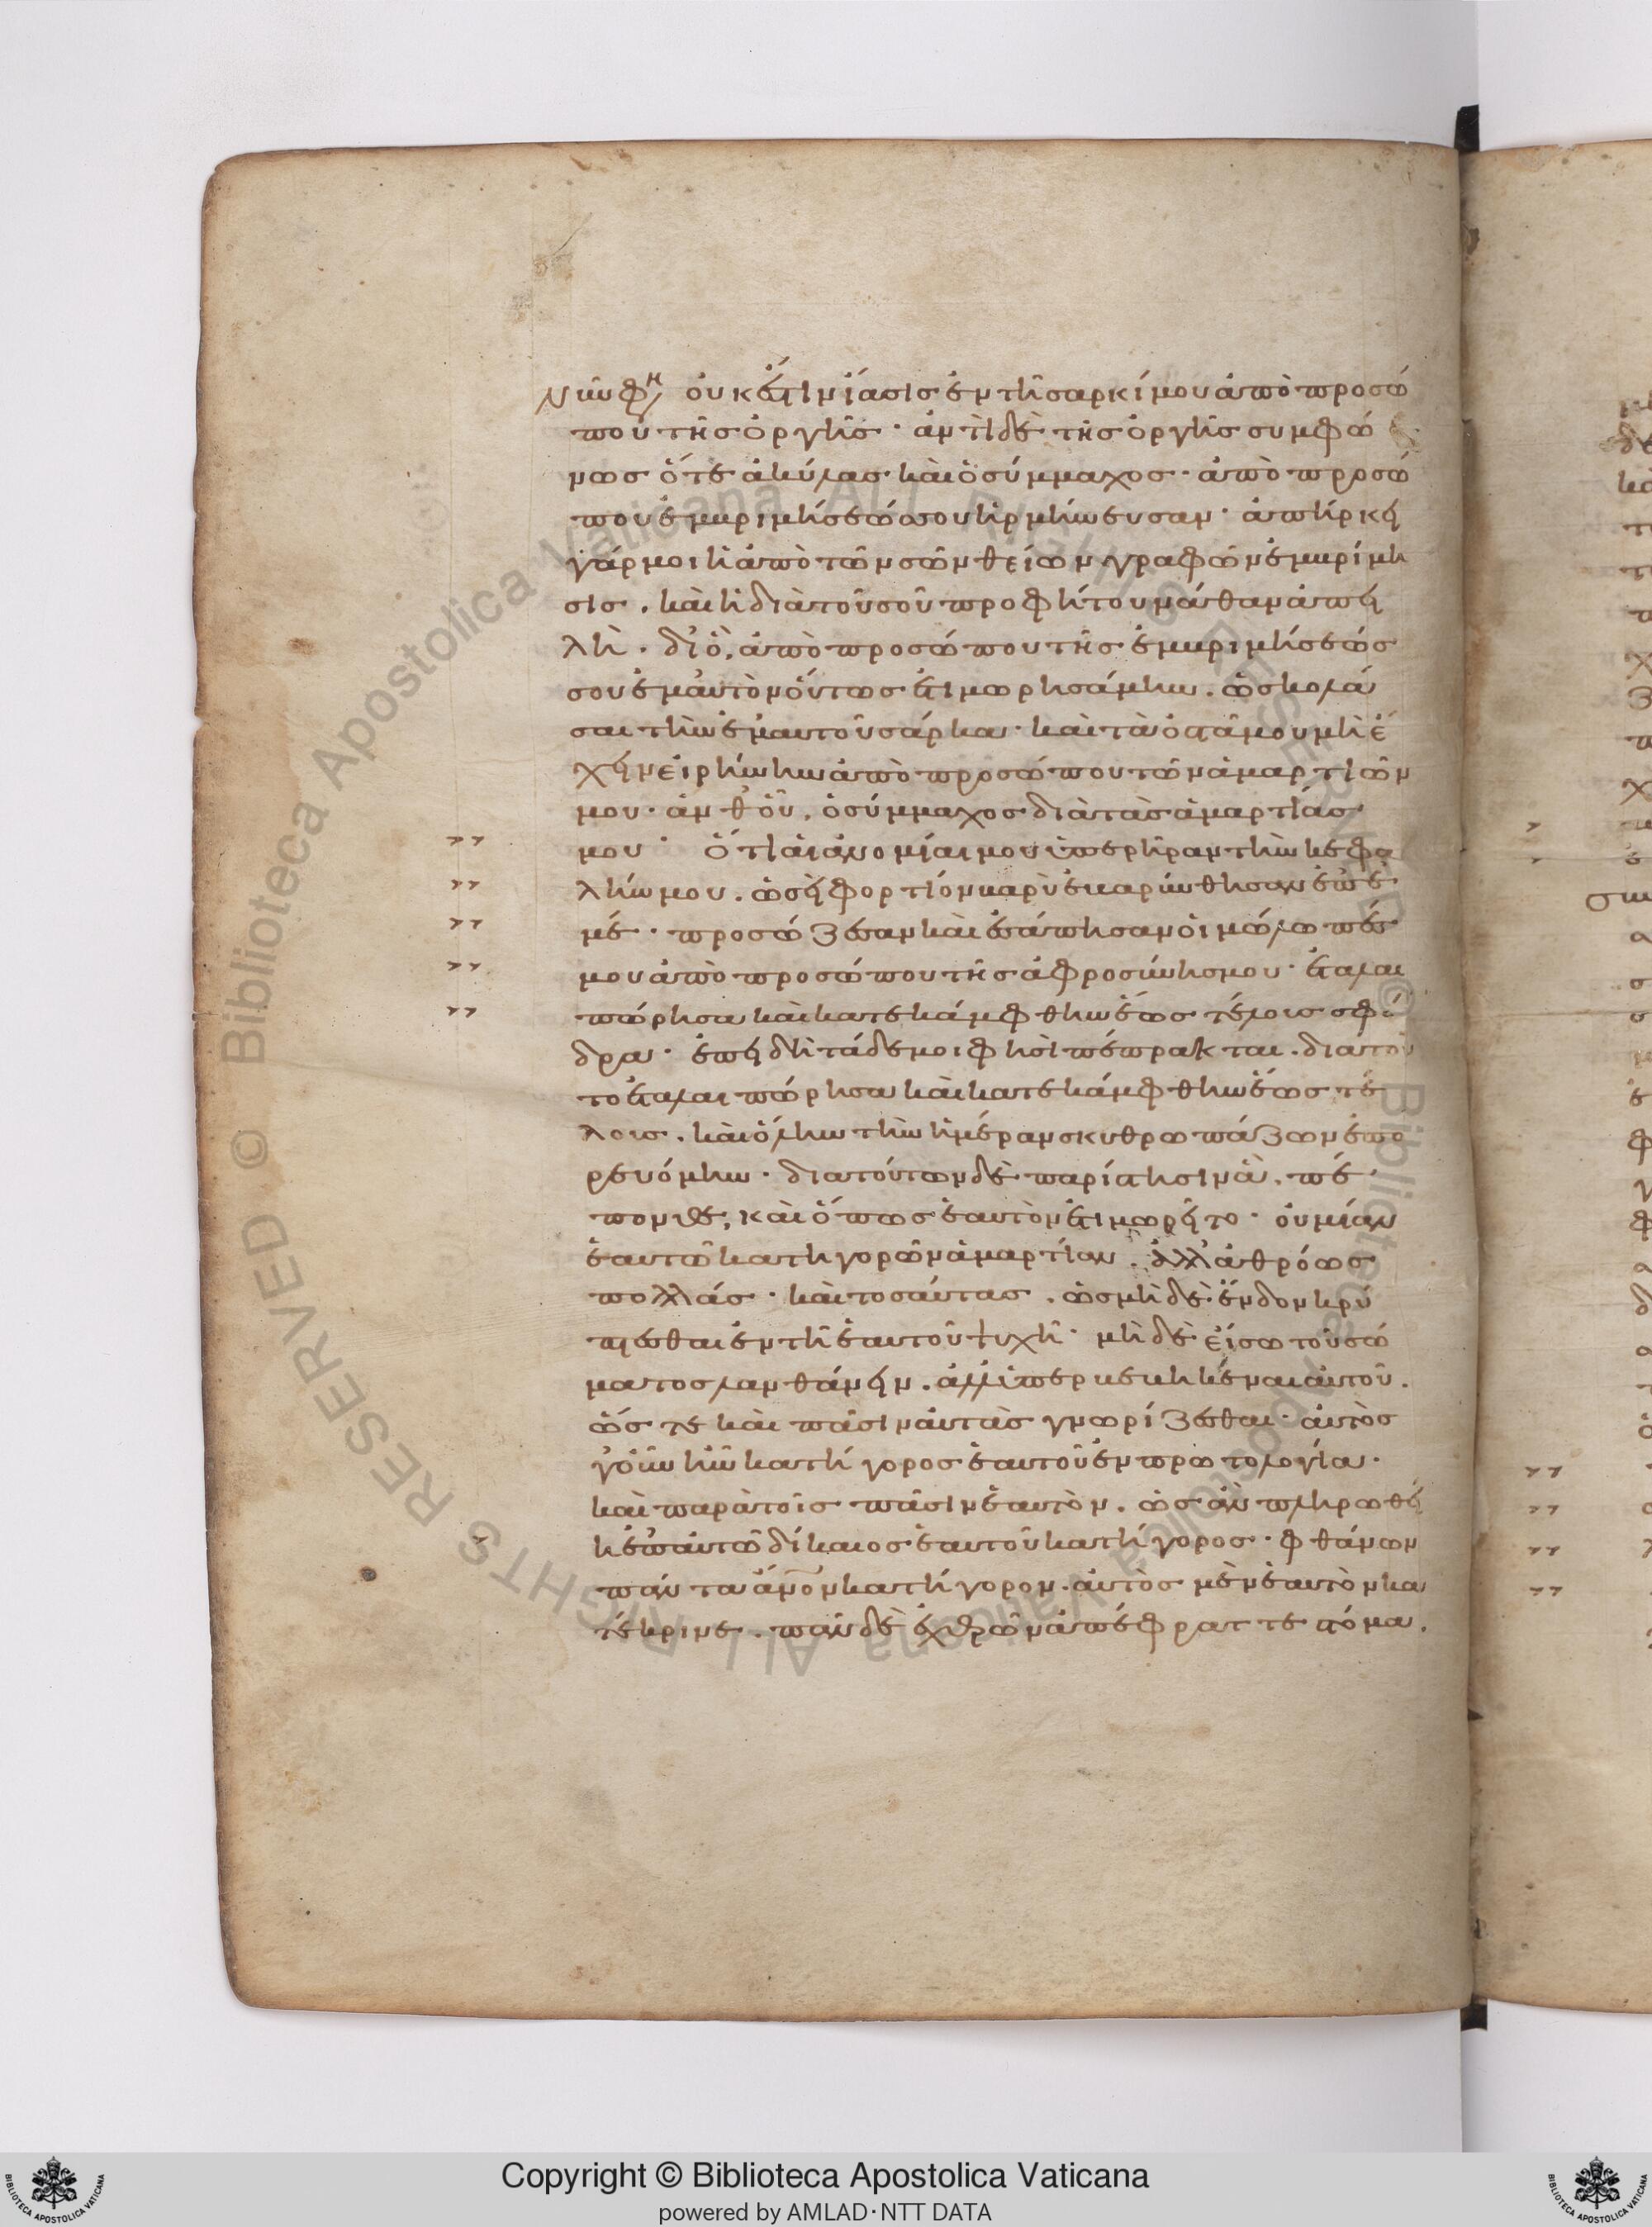 νῦν φη οὐκ ἔστιν ἴασις ἐν τῆ σαρκί μου ἀπὸ προσώ
που τῆς ὀργῆς· ἀντὶ δὲ τῆς ὀργῆς συμφώ
νως ὅτε ἀκύλας καὶ ὁ σύμμαχος· ἀπὸ προσώ
που ἐμβριμήσεώς σου ἡρμήνευσαν· ἀπήρκει
γάρ μοι ἡ ἀπὸ τῶν σῶν θείων γραφῶν ἐμβρίμη
σις. καὶ ἡ διὰ τοῦ σοῦ προφήτου νάθαν ἀπει
λὴ· διὸ, ἀπὸ προσώπου τῆς ἐμβριμήσεώς
σου ἐμαυτὸν ὄντως ἐτιμωρησάμην. ὡς κολά
σαι τὴν ἐμαυτοῦ σάρκα· καὶ τὰ ὀστᾶ μου μὴ ἔ
χειν εἰρήνην ἀπὸ προσώπου τῶν ἁμαρτιῶν
μου· ἀνθ οὗ, ὁ σύμμαχος διὰ τὰς ἁμαρτίας
μου· Ὅτι αἱ ἀνομίαι μου ὑπερῆραν τὴν κεφα
λήν μου. ὡσεὶ φορτίον βαρὺ ἐβαρύνθησαν ἐπ ἐ
μέ· προσώζεσαν καὶ ἐσάπησαν οἱ μώλωπές
μου ἀπὸ προσώπου τῆς ἀφροσύνης μου· ἐταλαι
πώρησα καὶ κατεκάμφθην ἕως τέλους σφό
δρα· ἐπειδὴ τάδε μοι φησὶ πέπρακται. διὰ τοῦ
το ἐταλαιπώρησα καὶ κατεκάμφθην ἕως τέ
λους. καὶ ὅλην τὴν ἡμέραν σκυθρωπάζων ἐπο
ρευόμην· διὰ τούτων δὲ παρίστησιν ἃ. πέ
πονθε, καὶ ὅπως ἑαυτὸν ἐτιμωρεῖτο· οὐ μίαν
ἑαυτῶ κατηγορῶν ἁμαρτίαν. ἀλλ ἀθρόως
πολλάς· καὶ τοσαύτας. ὡς μὴ δὲ ἔνδον κρύ
πτεσθαι ἐν τῆ ἑαυτοῦ ψυχῆ· μὴ δὲ εἴσω τοῦ σώ
ματος λανθάνειν. ἀλλ ὑπερβεβηκέναι αὐτοῦ.
ὥς τε καὶ πᾶσιν αὐτὰς γνωρίζεσθαι· αὐτὸς
γοῦν ἦν κατήγορος ἑαυτοῦ ἐν πρωτολογία·
καὶ παρὰ τοῖς πᾶσιν ἑαυτὸν. ὡς ἂν πληρωθεί
η ἐπ αὐτῶ δίκαιος ἑαυτοῦ κατήγορος· φθάνων
πάντα ἄνον κατήγορον. αὐτὸς μὲν ἑαυτὸν κα
τέκρινε. πᾶν δὲ ἐχθρῶν ἀπέφραττε στόμα.